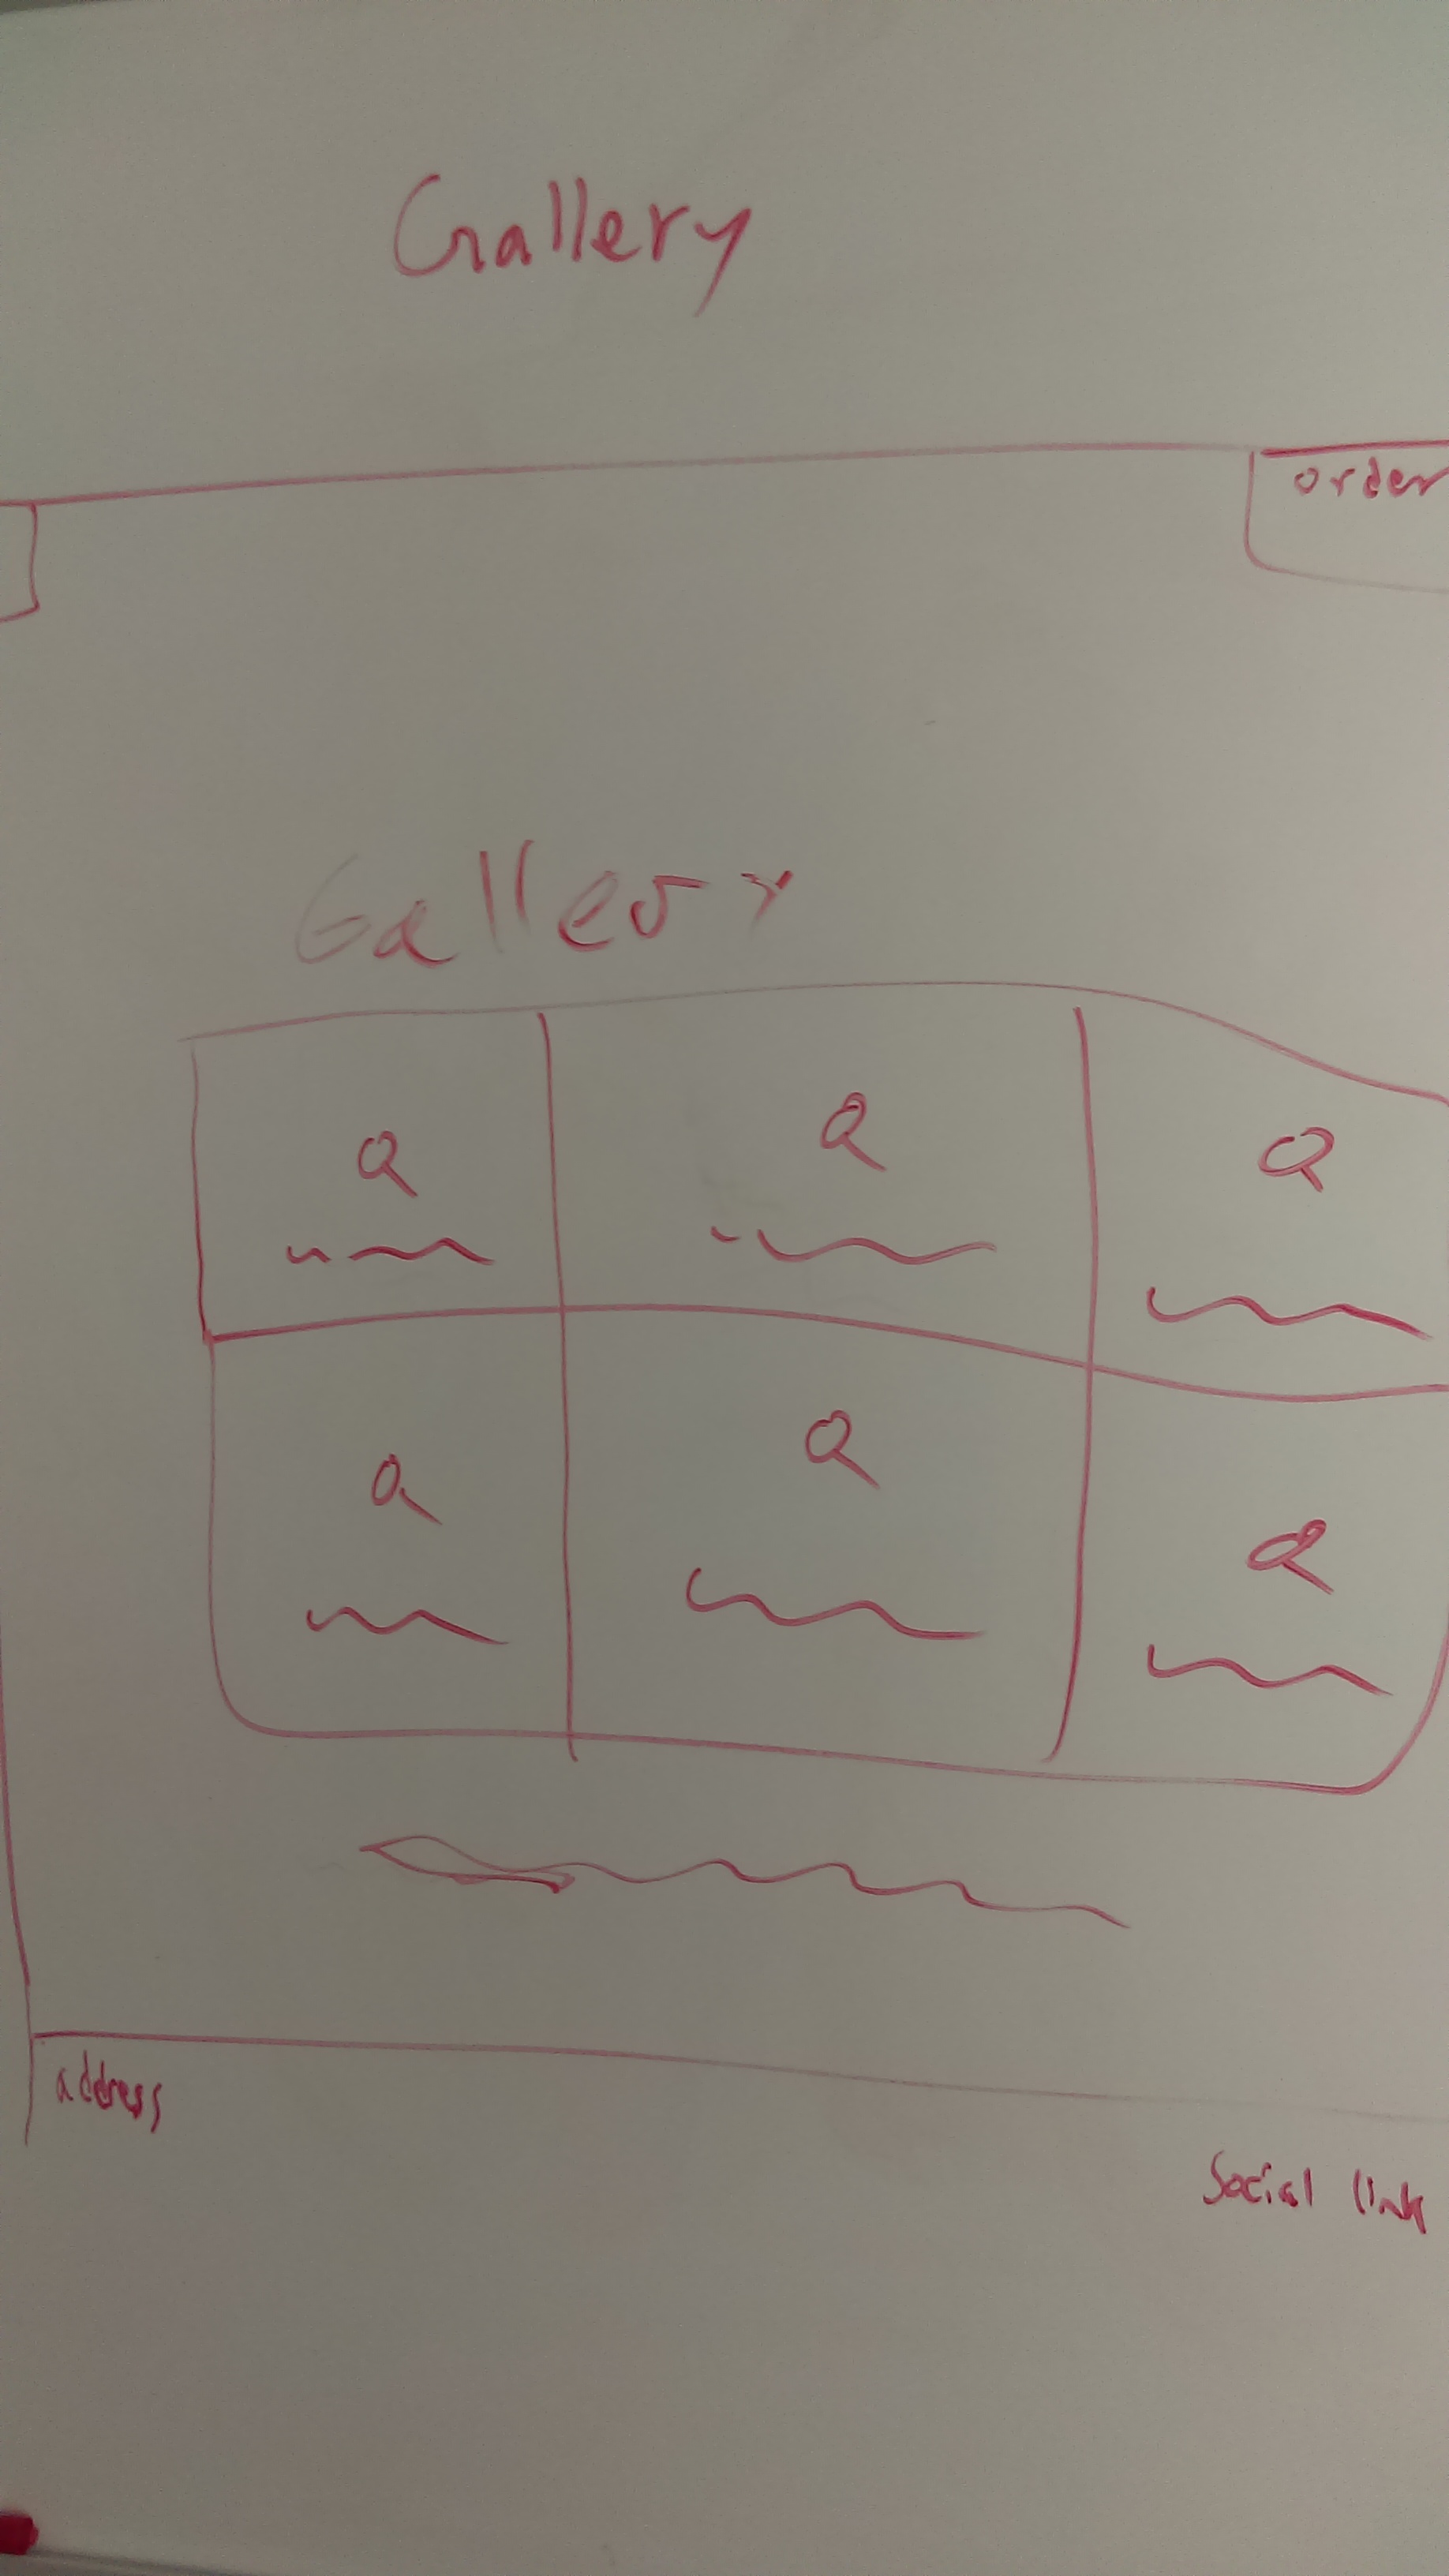 Gallery
order
Gallery
Q Q Q
Q Q Q
address
Social link